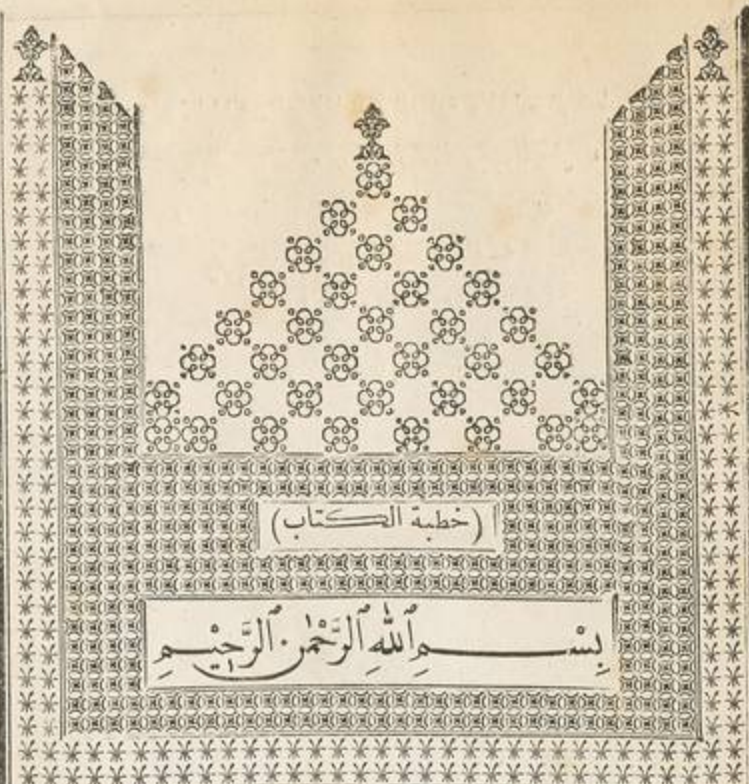 (خطبة الكتاب)
بِسْمِ ٱللّٰهِ ٱلرَّحْمٰنِ ٱلرَّحِيْمِ